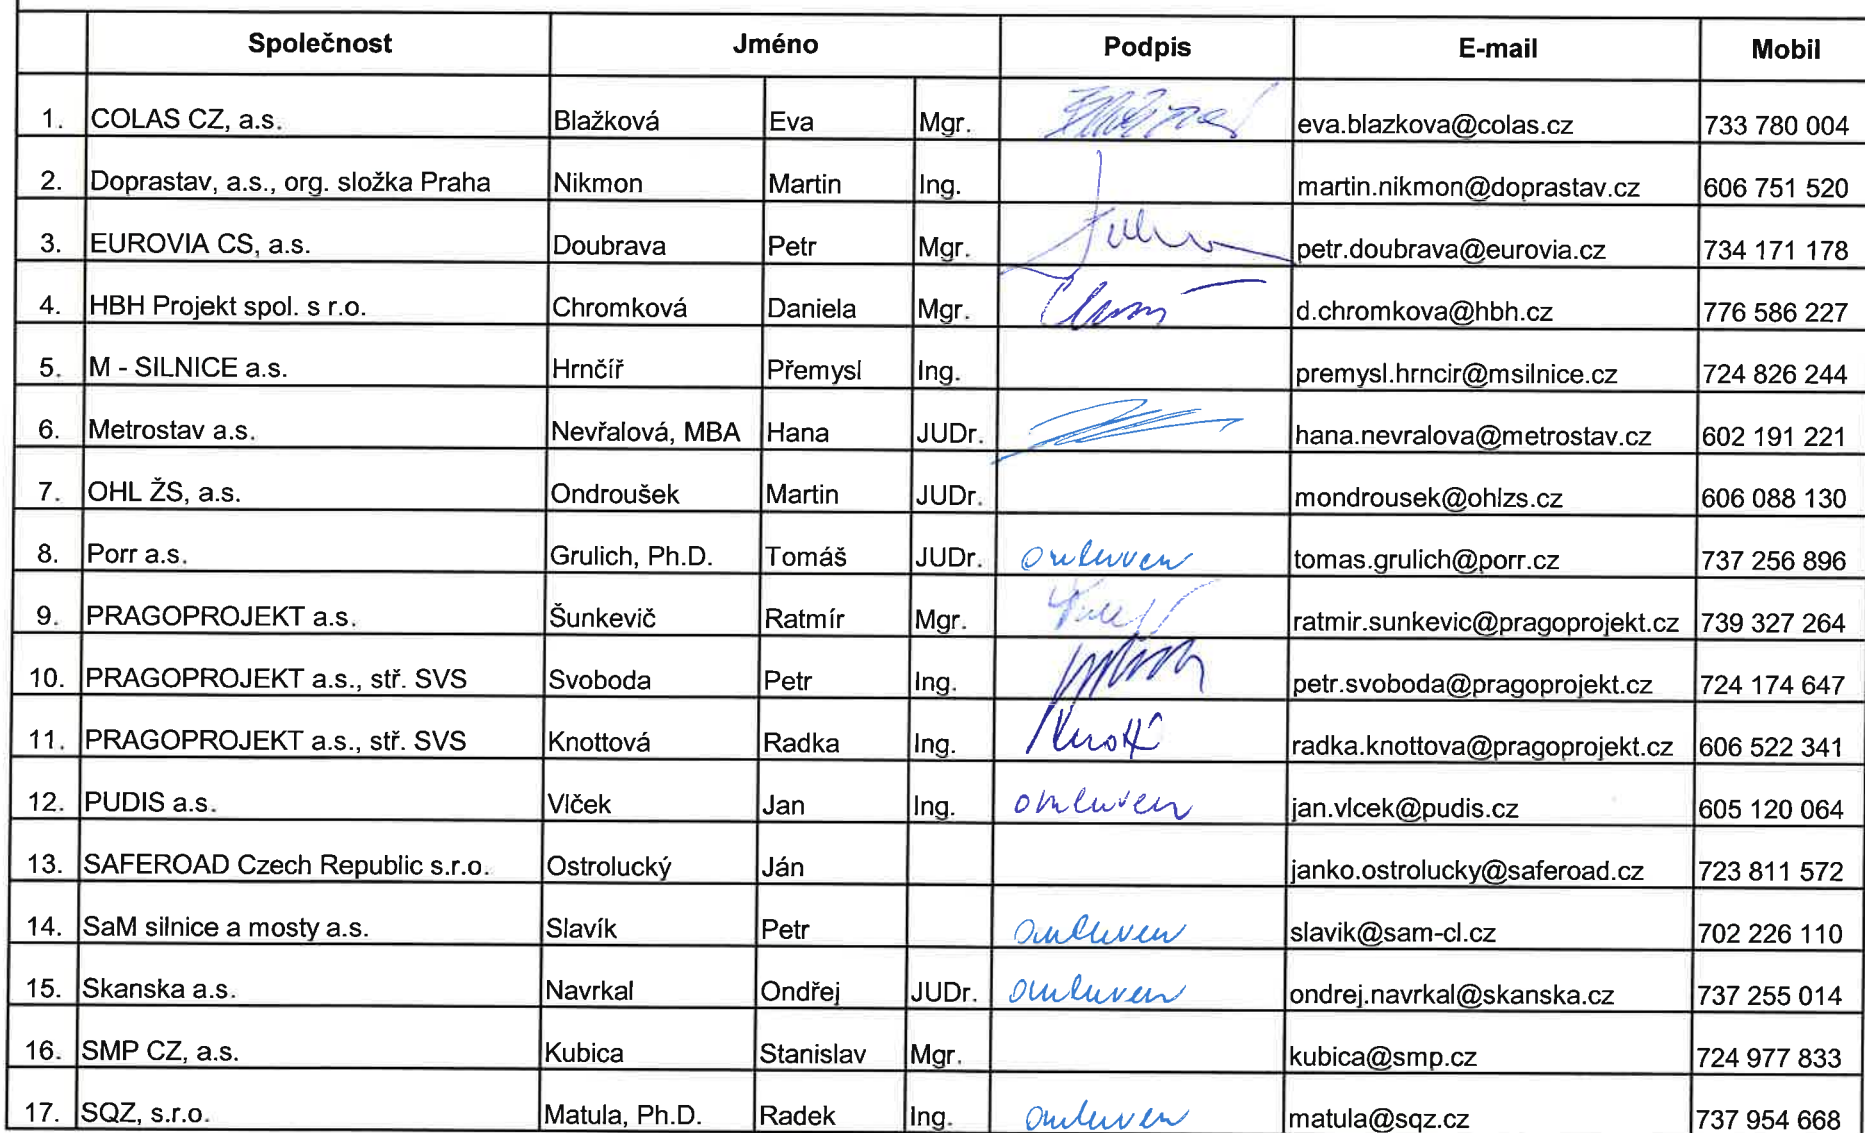 Společnost Jméno Podpis E-mail Mobil
1. COLAS CZ, a.s. Blažková Eva Mgr. eva.blazkova@colas.cz 733 780 004
2. Doprastav, a.s., org. složka Praha Nikmon Martin Ing. martin.nikmon@doprastav.cz 606 751 520
3. EUROVIA CS, a.s. Doubrava Petr Mgr. petr.doubrava@eurovia.cz 734 171 178
4. HBH Projekt spol. s r.o. Chromková Daniela Mgr. d.chromkova@hbh.cz 776 586 227
5. M - SILNICE a.s. Hrnčíř Přemysl Ing. premysl.hrncir@msilnice.cz 724 826 244
6. Metrostav a.s. Nevřalová, MBA Hana JUDr. hana.nevralova@metrostav.cz 602 191 221
7. OHL ŽS, a.s. Ondroušek Martin JUDr. mondrousek@ohlzs.cz 606 088 130
8. Porr a.s. Grulich, Ph.D. Tomáš JUDr. omluven tomas.grulich@porr.cz 737 256 896
9. PRAGOPROJEKT a.s. Šunkevič Ratmír Mgr. ratmir.sunkevic@pragoprojekt.cz 739 327 264
10. PRAGOPROJEKT a.s., stř. SVS Svoboda Petr Ing. petr.svoboda@pragoprojekt.cz 724 174 647
11. PRAGOPROJEKT a.s., stř. SVS Knottová Radka Ing. radka.knottova@pragoprojekt.cz 606 522 341
12. PUDIS a.s. Vlček Jan Ing. omluven jan.vlcek@pudis.cz 605 120 064
13. SAFEROAD Czech Republic s.r.o. Ostrolucký Ján janko.ostrolucky@saferoad.cz 723 811 572
14. SaM silnice a mosty a.s. Slavík Petr omluven slavik@sam-cl.cz 702 226 110
15. Skanska a.s. Navrkal Ondřej JUDr. omluven ondrej.navrkal@skanska.cz 737 255 014
16. SMP CZ, a.s. Kubica Stanislav Mgr. kubica@smp.cz 724 977 833
17. SQZ, s.r.o. Matula, Ph.D. Radek Ing. omluven matula@sqz.cz 737 954 668